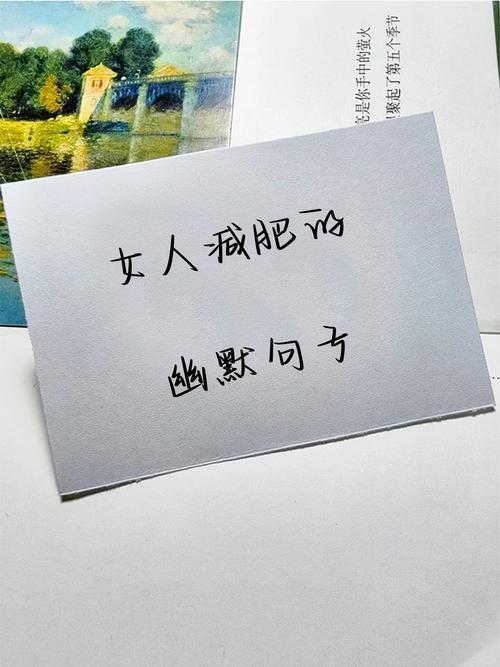 女人减肥的
幽默句子
亮是你手中的萤火
聚起了第五个季节